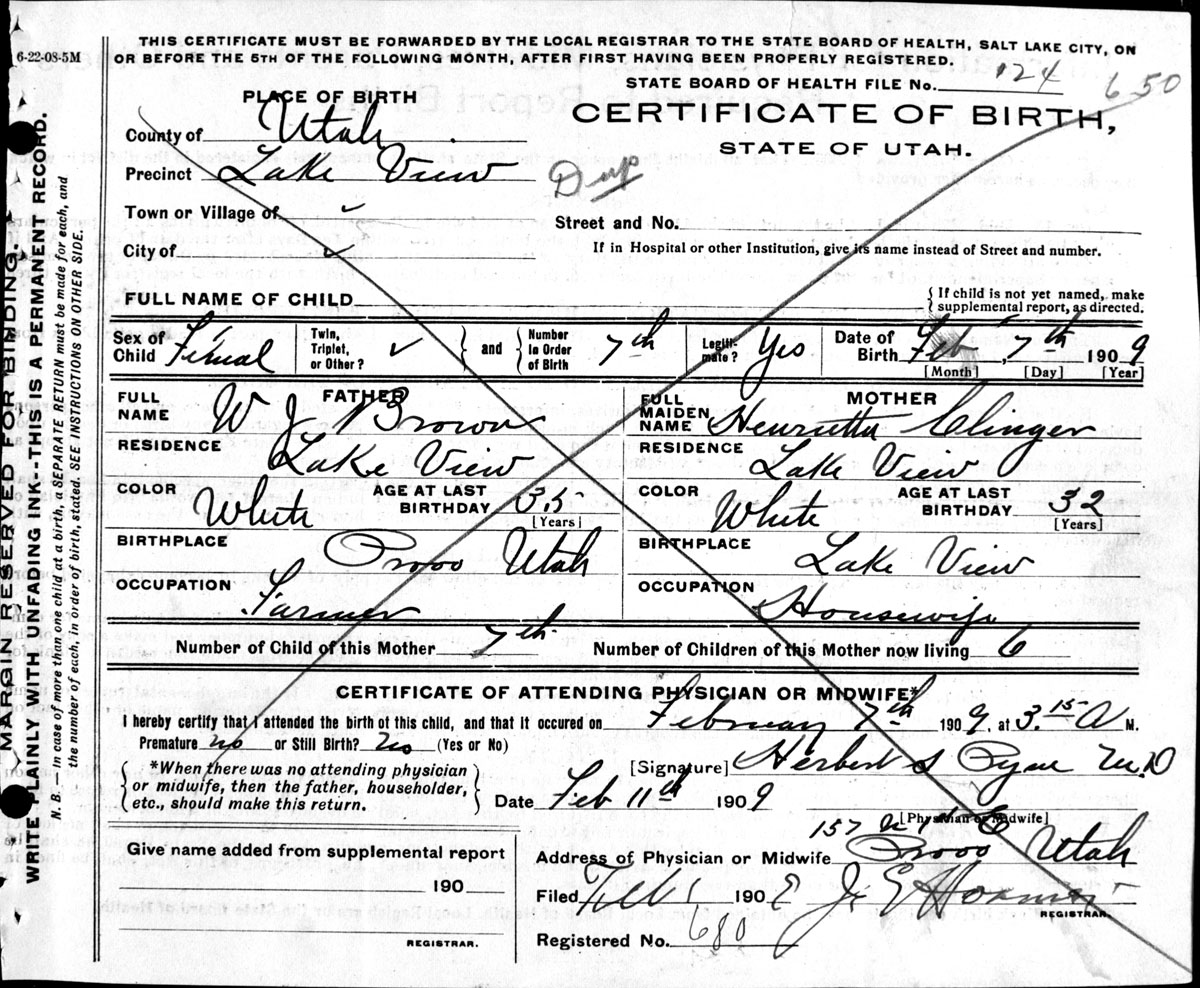 6-22-08-5M
THIS CERTIFICATE MUST BE FORWARDED BY THE LOCAL REGISTRAR TO THE STATE BOARD OF HEALTH, SALT LAKE CITY, ON
OR BEFORE THE 5TH OF THE FOLLOWING MONTH, AFTER FIRST HAVING BEEN PROPERLY REGISTERED.
STATE BOARD OF HEALTH FILE No. 124 650
PLACE OF BIRTH
CERTIFICATE OF BIRTH,
STATE OF UTAH.
County of Utah
Precinct Lake View
Dup
Town or Village of ✓
Street and No.
City of ✓
If in Hospital or other Institution, give its name instead of Street and number.
FULL NAME OF CHILD
{ If child is not yet named, make
supplemental report, as directed.
Sex of Child Femal Twin, Triplet, or Other? ✓ } and { Number in Order of Birth 7th Legiti-mate? Yes Date of Birth Feb, 7th 1909
[Month] [Day] [Year]
FATHER
FULL NAME W J Brown
RESIDENCE Lake View
COLOR White AGE AT LAST BIRTHDAY 35 [Years]
BIRTHPLACE Provo Utah
OCCUPATION Farmer
MOTHER
FULL MAIDEN NAME Henrietta Clinger
RESIDENCE Lake View
COLOR White AGE AT LAST BIRTHDAY 32 [Years]
BIRTHPLACE Lake View
OCCUPATION Housewife
Number of Child of this Mother 7th Number of Children of this Mother now living 6
CERTIFICATE OF ATTENDING PHYSICIAN OR MIDWIFE*
I hereby certify that I attended the birth of this child, and that it occured on February 7th 1909, at 3.15 A M.
Premature no or Still Birth? No (Yes or No)
{ *When there was no attending physician
or midwife, then the father, householder,
etc., should make this return. }
[Signature] Herbert S Pyne M.D
Date Feb 11th 1909
[Physician or Midwife]
Give name added from supplemental report
190
REGISTRAR.
157
Address of Physician or Midwife Provo Utah
Filed 1909 J E
REGISTRAR.
Registered No. 680
MARGIN RESERVED FOR BINDING.
WRITE PLAINLY WITH UNFADING INK--THIS IS A PERMANENT RECORD.
N. B. In case of more than one child at a birth, a SEPARATE RETURN must be made for each, and
the number of each, in order of birth, stated. SEE INSTRUCTIONS ON OTHER SIDE.